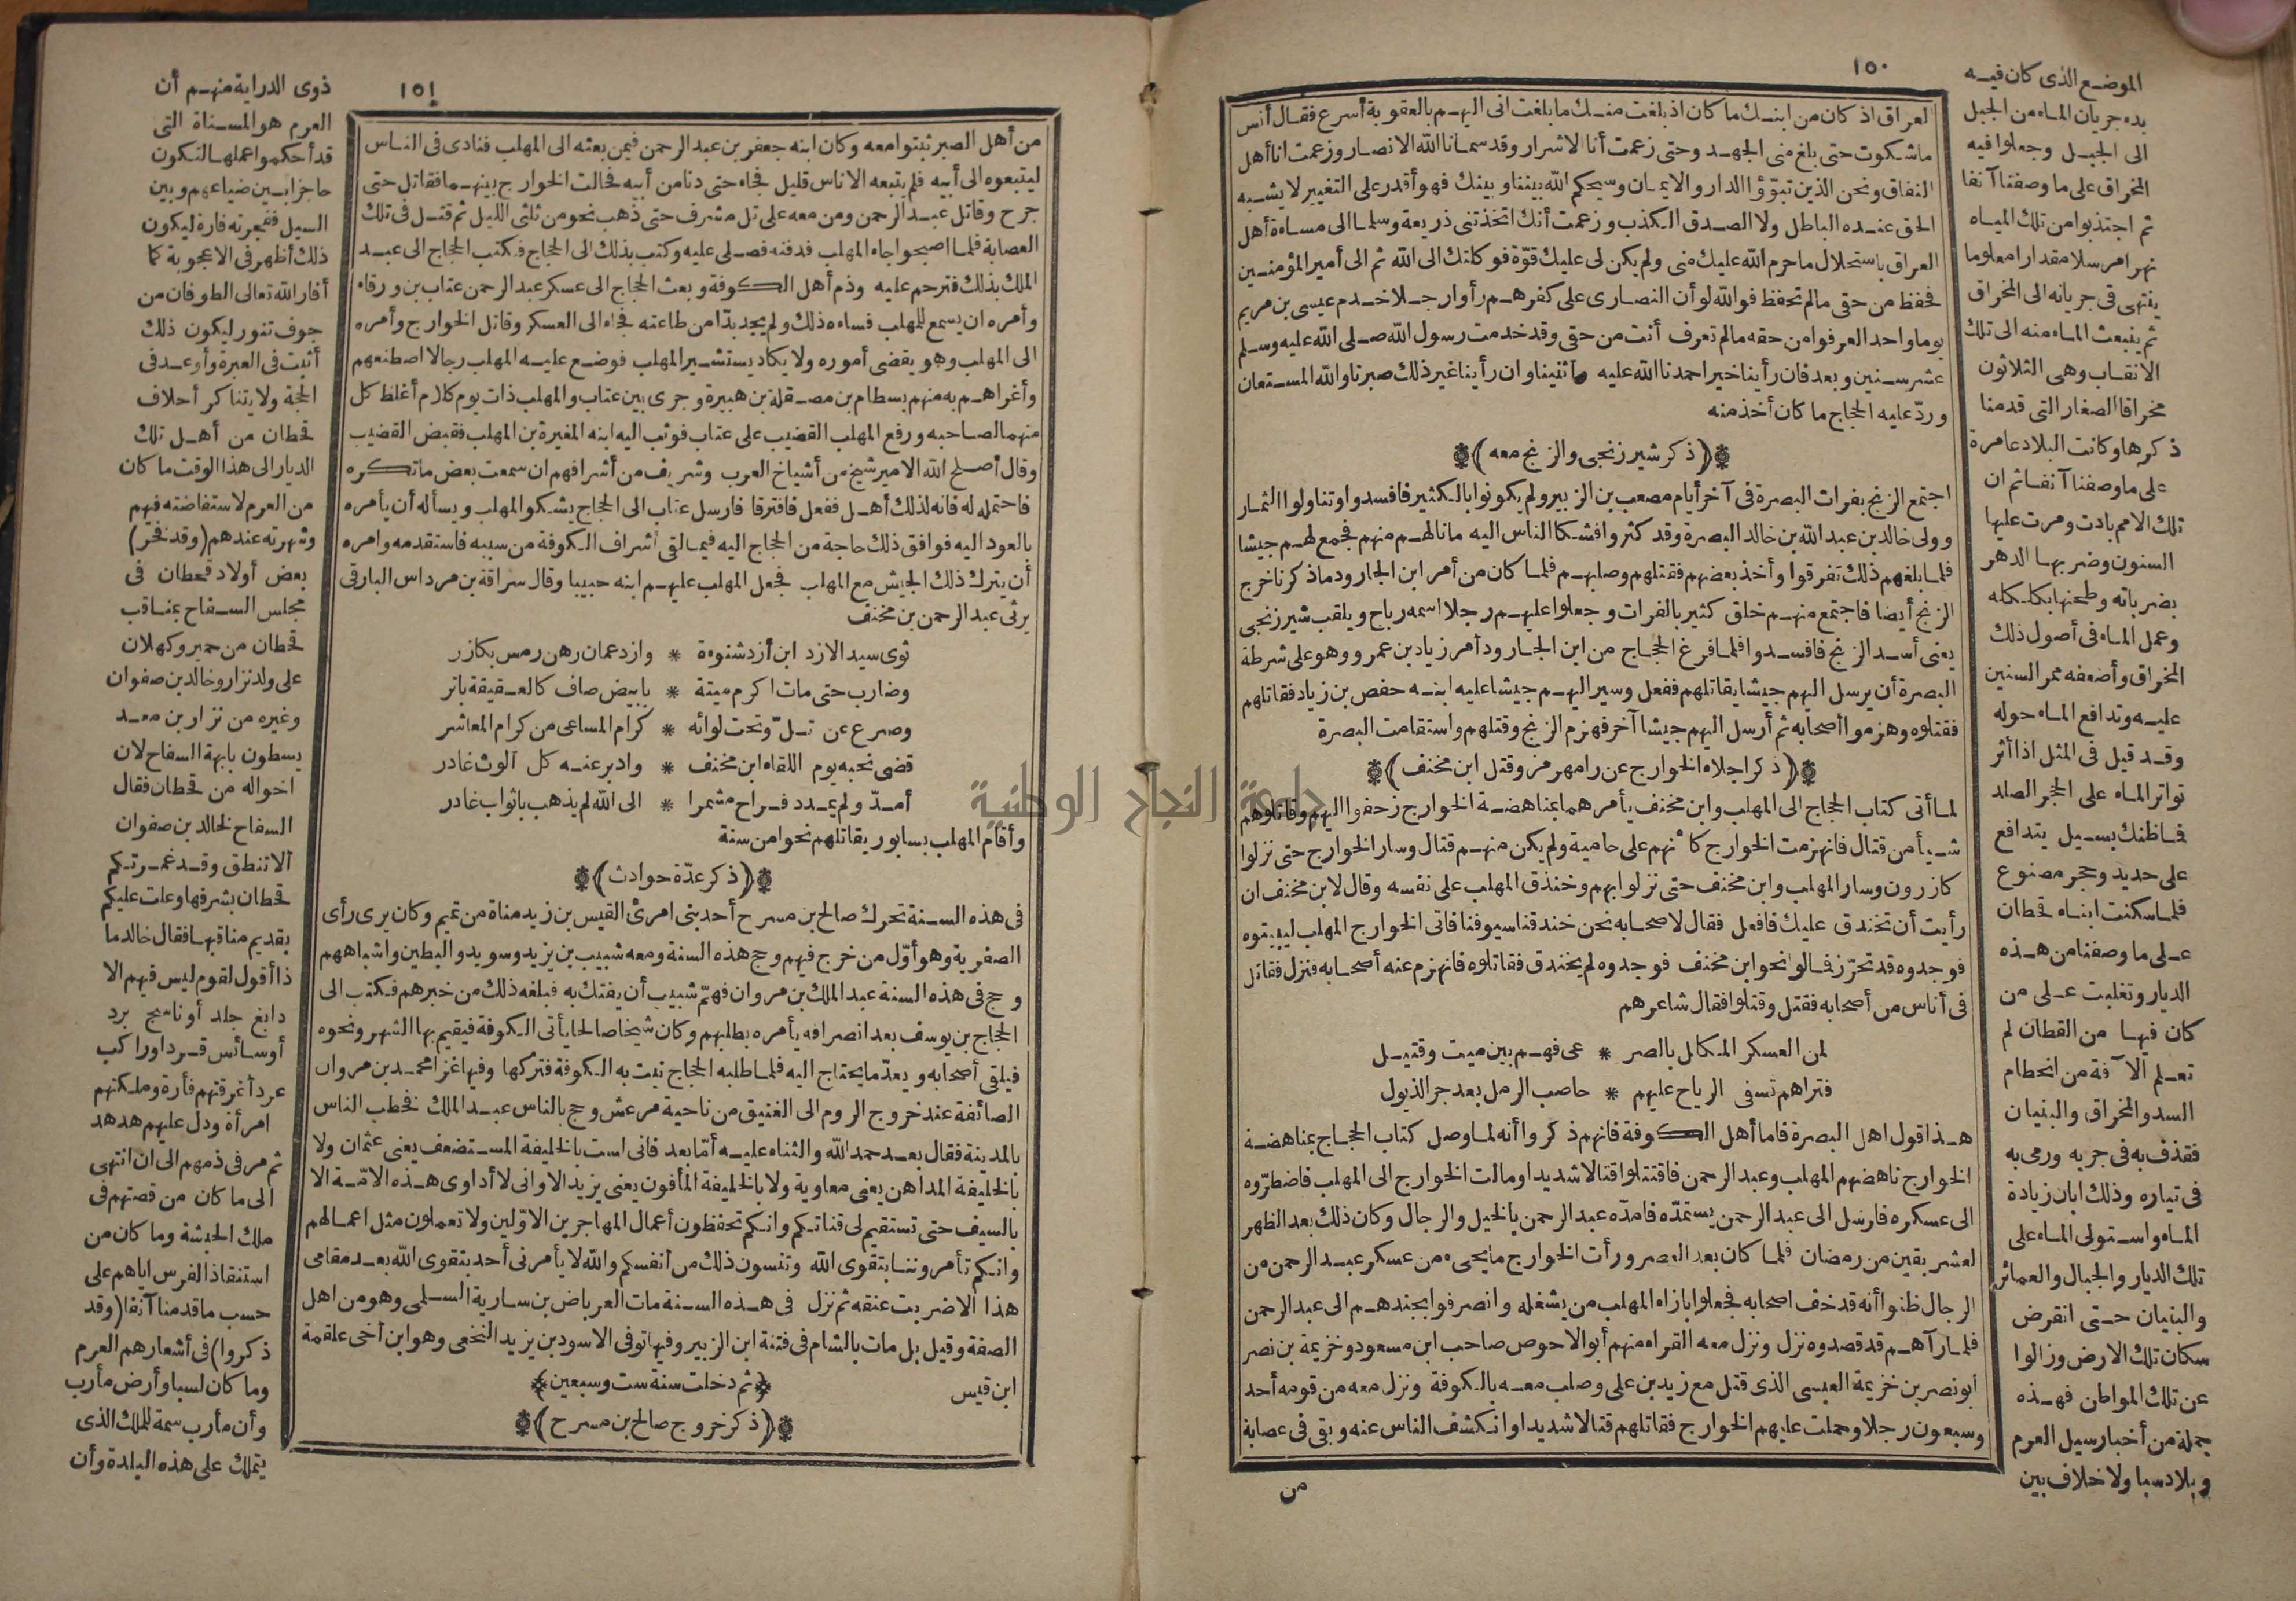 ١٥٠
العراق اذ كان من ابنك ما كان اذ بلغت منك ما بلغت انى اليهم بالعقوبة أسرع فقال أنس
ما شكوت حتى بلغ منى الجهد وحتى زعمت أنا الاشرار وقد سمانا الله الانصار وزعمت انا أهل
النفاق ونحن الذين تبوّؤا الدار والايمان وسيحكم الله بيننا وبينك فهو أقدر على التغيير لا يشبه
الحق عنده الباطل ولا الصدق الكذب وزعمت أنك اتخذتنى ذريعة وسلما الى مساءة أهل
العراق باستحلال ما حرم الله عليك منى ولم يكن لى عليك قوّة فوكلتك الى الله ثم الى أمير المؤمنين
فحفظ من حقى مالم تحفظ فوالله لو أن النصارى على كفرهم رأوا رجلا خدم عيسى بن مريم
يوما واحد العرفوا من حقه مالم تعرف أنت من حقى وقد خدمت رسول الله صلى الله عليه وسلم
عشر سنين وبعد فان رأينا خيرا حمدنا الله عليه وأثنينا وان رأينا غير ذلك صبرنا والله المستعان
وردّ عليه الحجاج ما كان أخذ منه
﴿(ذكر شير زنجى والزنج معه)﴾
اجتمع الزنج بفرات البصرة فى آخر أيام مصعب بن الزبير ولم يكونوا بالكثير فافسدوا وتناولوا الثمار
وولى خالد بن عبد الله بن خالد البصرة وقد كثروا فشكا الناس اليه ما نالهم منهم فجمع لهم جيشا
فلما بلغهم ذلك تفرقوا وأخذ بعضهم فقتلهم وصلبهم فلما كان من أمر ابن الجارود ما ذكرنا خرج
الزنج أيضا فاجتمع منهم خلق كثير بالفرات وجعلوا عليهم رجلا اسمه رباح ويلقب شير زنجى
يعنى أسد الزنج فافسدوا فلما فرغ الحجاج من ابن الجارود أمر زياد بن عمرو وهو على شرطة
البصرة أن يرسل اليهم جيشا يقاتلهم ففعل وسير اليهم جيشا عليه ابنه حفص بن زياد فقاتلهم
فقتلوه وهزموا أصحابه ثم أرسل اليهم جيشا آخر فهزم الزنج وقتلهم واستقامت البصرة
﴿(ذكر اجلاء الخوارج عن رامهرمز وقتل ابن مخنف)﴾
لما أتى كتاب الحجاج الى المهلب وابن مخنف يأمرهما بمناهضة الخوارج زحفوا اليهم وقاتلوهم
شيأ من قتال فانهزمت الخوارج كأنهم على حامية ولم يكن منهم قتال وسار الخوارج حتى نزلوا
كازرون وسار المهلب وابن مخنف حتى نزلوا بهم وخندق المهلب على نفسه وقال لابن مخنف ان
رأيت أن تخندق عليك فافعل فقال لاصحابه نحن خندقنا سيوفنا فاتى الخوارج المهلب ليبيتوه
فوجدوه قد تحرّز فمالوا نحو ابن مخنف فوجدوه لم يخندق فقاتلوه فانهزم عنه أصحابه فنزل فقاتل
فى أناس من أصحابه فقتل وقتلوا فقال شاعرهم
لمن العسكر المكلل بالصر * عى فهم بين ميت وقتيل
فتراهم تسفى الرياح عليهم * حاصب الرمل بعد جر الذيول
هذا قول اهل البصرة فاما أهل الكوفة فانهم ذكروا أنه لما وصل كتاب الحجاج بمناهضة
الخوارج ناهضهم المهلب وعبد الرحمن فاقتتلوا قتالا شديدا ومالت الخوارج الى المهلب فاضطرّوه
الى عسكره فارسل الى عبد الرحمن يستمدّه فامدّه عبد الرحمن بالخيل والرجال وكان ذلك بعد الظهر
لعشر بقين من رمضان فلما كان بعد العصر ورأت الخوارج ما يجىء من عسكر عبد الرحمن من
الرجال ظنوا أنه قد خف اصحابه فجعلوا بازاء المهلب من يشغله وانصرفوا بجندهم الى عبد الرحمن
فلما رآهم قد قصدوه نزل ونزل معه القراء منهم أبو الاحوص صاحب ابن مسعود وخزيمة بن نصر
أبو نصر بن خزيمة العبسى الذى قتل مع زيد بن على وصلب معه بالكوفة ونزل معه من قومه أحد
وسبعون رجلا وحملت عليهم الخوارج فقاتلهم قتالا شديدا وانكشف الناس عنه وبقى فى عصابة
من
الموضع الذى كان فيه
بدء جريان الماء من الجبل
الى الجبل وجعلوا فيه
المخراق على ما وصفنا آنفا
ثم اجتذبوا من تلك المياه
نهرا مرسلا مقدارا معلوما
ينتهى فى جريانه الى المخراق
ثم ينبعث الماء منه الى تلك
الانقاب وهى الثلاثون
مخراقا الصغار التى قدمنا
ذكرها وكانت البلاد عامرة
على ما وصفنا آنفا ثم ان
تلك الامم بادت ومرت عليها
السنون وضربها الدهر
بضرباته وطحنها بكلكله
وعمل الماء فى أصول ذلك
المخراق وأضعفه ممر السنين
عليه وتدافع الماء حوله
وقد قيل فى المثل اذا أثر
تواتر الماء على الحجر الصلد
فما ظنك بسيل يتدافع
على حديد وحجر مصنوع
فلما سكنت ابناء قحطان
على ما وصفنا من هذه
الديار وتغلبت على من
كان فيها من القطان لم
تعلم الآفة من انحطام
السد والمخراق والبنيان
فقذف به فى جريه ورمى به
فى تياره وذلك ابان زيادة
الماء واستولى الماء على
تلك الديار والجبال والعمائر
والبنيان حتى انقرض
سكان تلك الارض وزالوا
عن تلك المواطن فهذه
جملة من أخبار سيل العرم
وبلاد سبا ولا خلاف بين
١٥١
من أهل الصبر ثبتوا معه وكان ابنه جعفر بن عبد الرحمن فيمن بعثه الى المهلب فنادى فى الناس
ليتبعوه الى أبيه فلم يتبعه الا ناس قليل فجاء حتى دنا من أبيه فحالت الخوارج بينهما فقاتل حتى
جرح وقاتل عبد الرحمن ومن معه على تل مشرف حتى ذهب نحو من ثلثى الليل ثم قتل فى تلك
العصابة فلما اصبحوا جاء المهلب فدفنه فصلى عليه وكتب بذلك الى الحجاج فكتب الحجاج الى عبد
الملك بذلك فترحم عليه وذم أهل الكوفة وبعث الحجاج الى عسكر عبد الرحمن عتاب بن ورقاء
وأمره ان يسمع للمهلب فساءه ذلك ولم يجد بدّا من طاعته فجاء الى العسكر وقاتل الخوارج وأمره
الى المهلب وهو يقضى أموره ولا يكاد يستشير المهلب فوضع عليه المهلب رجالا اصطنعهم
وأغراهم به منهم بسطام بن مصقلة بن هبيرة وجرى بين عتاب والمهلب ذات يوم كلام أغلظ كل
منهما لصاحبه ورفع المهلب القضيب على عتاب فوثب اليه ابنه المغيرة بن المهلب فقبض القضيب
وقال أصلح الله الامير شيخ من أشياخ العرب وشريف من أشرافهم ان سمعت بعض ما تكره
فاحتمله له فانه لذلك أهل ففعل فافترقا فارسل عتاب الى الحجاج يشكو المهلب ويسأله أن يأمره
بالعود اليه فوافق ذلك حاجة من الحجاج اليه فيما لقى أشراف الكوفة من سببه فاستقدمه وامره
أن يترك ذلك الجيش مع المهلب فجعل المهلب عليهم ابنه حبيبا وقال سراقة بن مرداس البارقى
يرثى عبد الرحمن بن مخنف
ثوى سيد الازد ابن أزد شنوءة * وازد عمان رهن رمس بكازر
وضارب حتى مات اكرم ميتة * بابيض صاف كالعقيقة باتر
وصرع عن تلّ وتحت لوائه * كرام المساعى من كرام المعاشر
قضى نحبه يوم اللقاء ابن مخنف * وادبر عنه كل ألوث غادر
أمدّ ولم يمدد فراح مشمرا * الى الله لم يذهب باثواب غادر
وأقام المهلب بسابور يقاتلهم نحوا من سنة
﴿(ذكر عدّة حوادث)﴾
فى هذه السنة تحرك صالح بن مسرح أحد بنى امرئ القيس بن زيد مناة من تميم وكان يرى رأى
الصفرية وهو أوّل من خرج فيهم وحج هذه السنة ومعه شبيب بن يزيد وسويد والبطين واشباههم
وحج فى هذه السنة عبد الملك بن مروان فهمّ شبيب أن يفتك به فبلغه ذلك من خبرهم فكتب الى
الحجاج بن يوسف بعد انصرافه يأمره بطلبهم وكان شيخا صالحا يأتى الكوفة فيقيم بها الشهر ونحوه
فيلقى أصحابه ويعدّ ما يحتاج اليه فلما طلبه الحجاج نبت به الكوفة فتركها وفيها غزا محمد بن مروان
الصائفة عند خروج الروم الى الغنيق من ناحية مرعش وحج بالناس عبد الملك فخطب الناس
بالمدينة فقال بعد حمد الله والثناء عليه أمّا بعد فانى لست بالخليفة المستضعف يعنى عثمان ولا
بالخليفة المداهن يعنى معاوية ولا بالخليفة المأفون يعنى يزيد الا وانى لا أداوى هذه الامّة الا
بالسيف حتى تستقيم لى قناتكم وانكم تحفظون أعمال المهاجرين الاوّلين ولا تعملون مثل اعمالهم
وانكم تأمروننا بتقوى الله وتنسون ذلك من أنفسكم والله لا يأمرنى أحد بتقوى الله بعد مقامى
هذا الا ضربت عنقه ثم نزل فى هذه السنة مات العرباض بن سارية السلمى وهو من اهل
الصفة وقيل بل مات بالشام فى فتنة ابن الزبير وفيها توفى الاسود بن يزيد النخعى وهو ابن أخى علقمة
ابن قيس ﴿ثم دخلت سنة ست وسبعين﴾
﴿(ذكر خروج صالح بن مسرح)﴾
ذوى الدراية منهم أن
العرم هو المسناة التى
قد أحكموا عملها لتكون
حاجزا بين ضياعهم وبين
السيل ففجرته فارة ليكون
ذلك أظهر فى الاعجوبة كما
أفار الله تعالى الطوفان من
جوف تنور ليكون ذلك
أثبت فى العبرة وأوعد فى
الحجة ولا يتناكر أحلاف
قحطان من أهل تلك
الديار الى هذا الوقت ما كان
من العرم لاستفاضته فيهم
وشهرته عندهم (وقد فخر)
بعض أولاد قحطان فى
مجلس السفاح بمناقب
قحطان من حمير وكهلان
على ولد نزار وخالد بن صفوان
وغيره من نزار بن معد
يسطون بابهة السفاح لان
اخواله من قحطان فقال
السفاح لخالد بن صفوان
ألا تنطق وقد غمرتكم
قحطان بشرفها وعلت عليكم
بقديم مناقبها فقال خالد ما
ذا أقول لقوم ليس فيهم الا
دابغ جلد أو ناسج برد
أو سائس قرد أو راكب
عرد أغرقتهم فأرة وملكتهم
امرأة ودل عليهم هدهد
ثم مر فى ذمهم الى ان انتهى
الى ما كان من قصتهم فى
ملك الحبشة وما كان من
استنقاذ الفرس اياهم على
حسب ما قدمنا آنفا (وقد
ذكروا) فى أشعارهم العرم
وما كان لسبا وأرض مأرب
وأن مأرب سمة للملك الذى
يتملك على هذه البلدة وأن
جامعة النجاح الوطنية